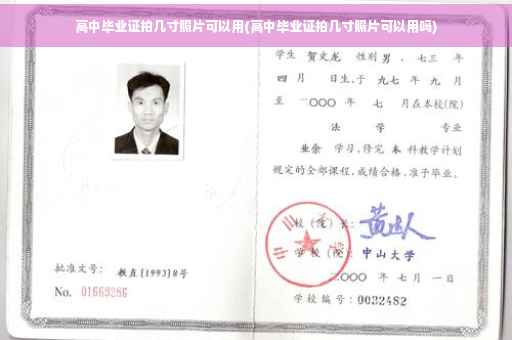 高中毕业证拍几寸照片可以用(高中毕业证拍几寸照片可以用吗)
学生 贺文龙 性别 男 、七三 年
四 月 日生,于 九七 年 九 月
至 二〇〇〇 年 七 月在本校(院)
法 学 专业
业余 学习,修完 本 科教学计划
规定的全部课程,成绩合格,准予毕业。
校(院)长:
学校(院): 中山大学
二〇〇〇 年 七 月 一 日
学校编号:0032482
批准文号: 教直[1993]8号
No. 01663286